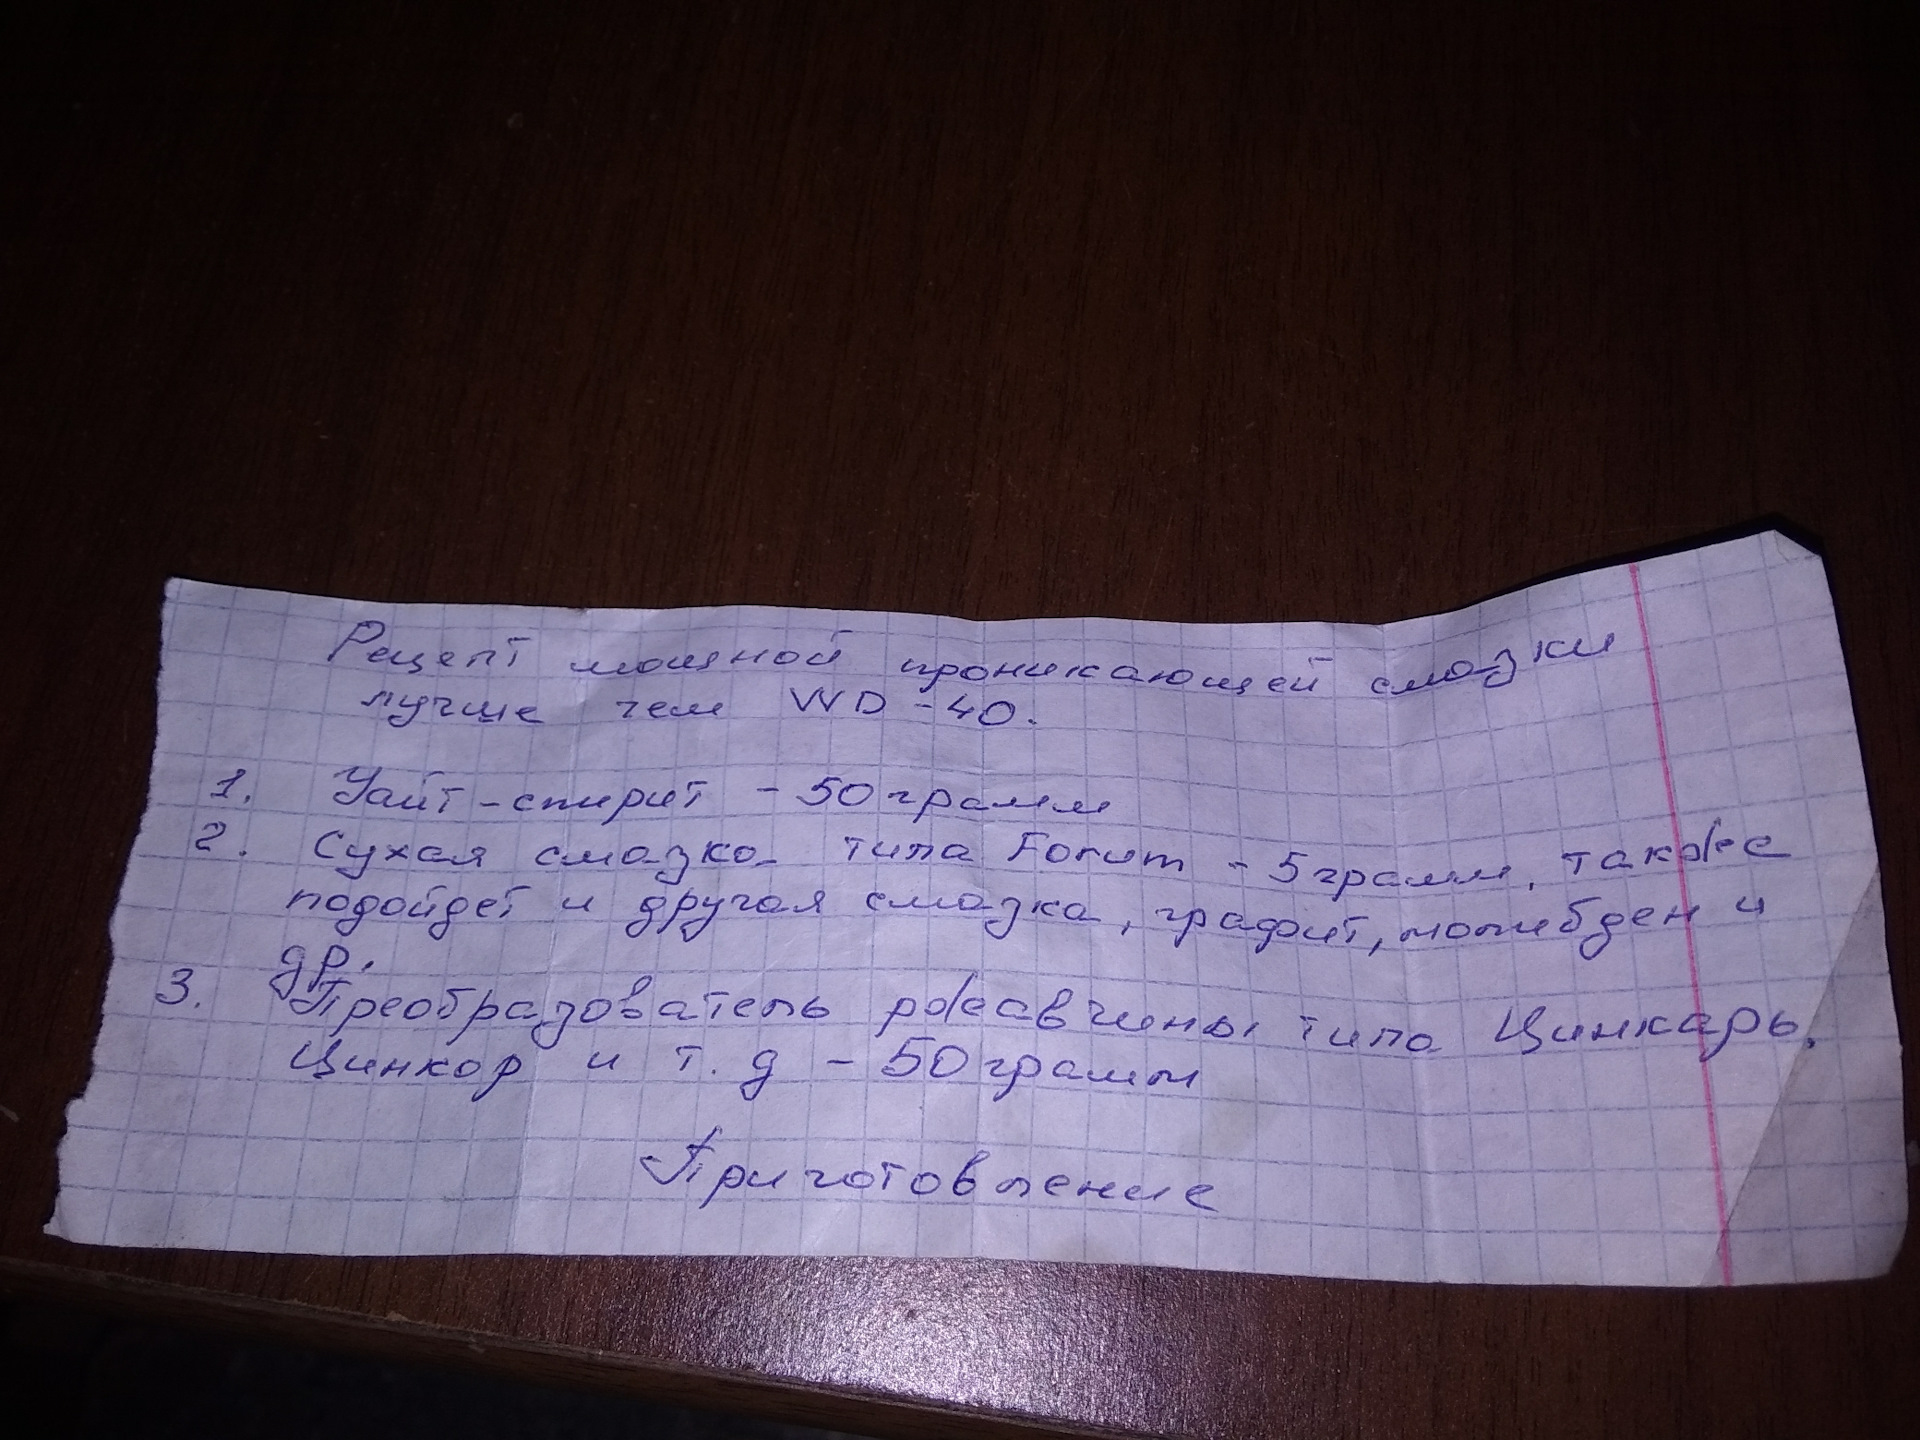 Рецепт мощной проникающей смазки
лучше чем WD-40.
1. Уайт-спирит - 50 грамм
2. Сухая смазка типа Forum - 5 грамм, также
подойдет и другая смазка, графит, молибден и
др.
3. Преобразователь ржавчины типа Цинкарь,
Цинкор и т.д - 50 грамм
Приготовление